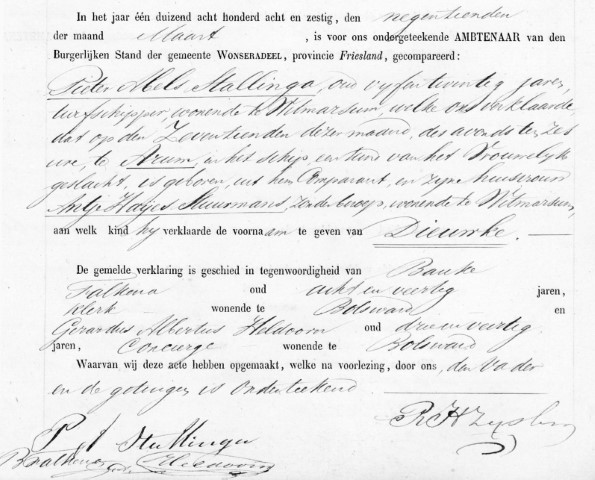 In het jaar één duizend acht honderd acht en zestig, den negentienden
der maand Maart , is voor ons ondergeteekende AMBTENAAR van den
Burgerlijken Stand der gemeente WONSERADEEL, provincie Friesland, gecompareerd:
Pieter Abels Stallinga, oud vyf en twintig jaren,
turfschipper, wonende te Witmarsum, welke ons verklaarde
dat op den Zeventienden dezer maand, des avonds ten zes
ure, te Arum, in het schip, een kind van het Vrouwelyk
geslacht, is geboren, uit hem Comparant, en zyne huisvrouw
Antje Hayes Stuurmans, zonder beroep, wonende te Witmarsum,
aan welk kind hy verklaarde de voornaam te geven van Dieuwke.
De gemelde verklaring is geschied in tegenwoordigheid van Bauke
Falkena oud acht en veertig jaren,
klerk wonende te Bolsward en
Gerardus Albertus Heldoorn oud drie en veertig
jaren, Concierge wonende te Bolsward
Waarvan wij deze acte hebben opgemaakt, welke na voorlezing, door ons, den Vader
en de getuigen is Onderteekend.
P A Stallinga
B Falkena Heldoorn